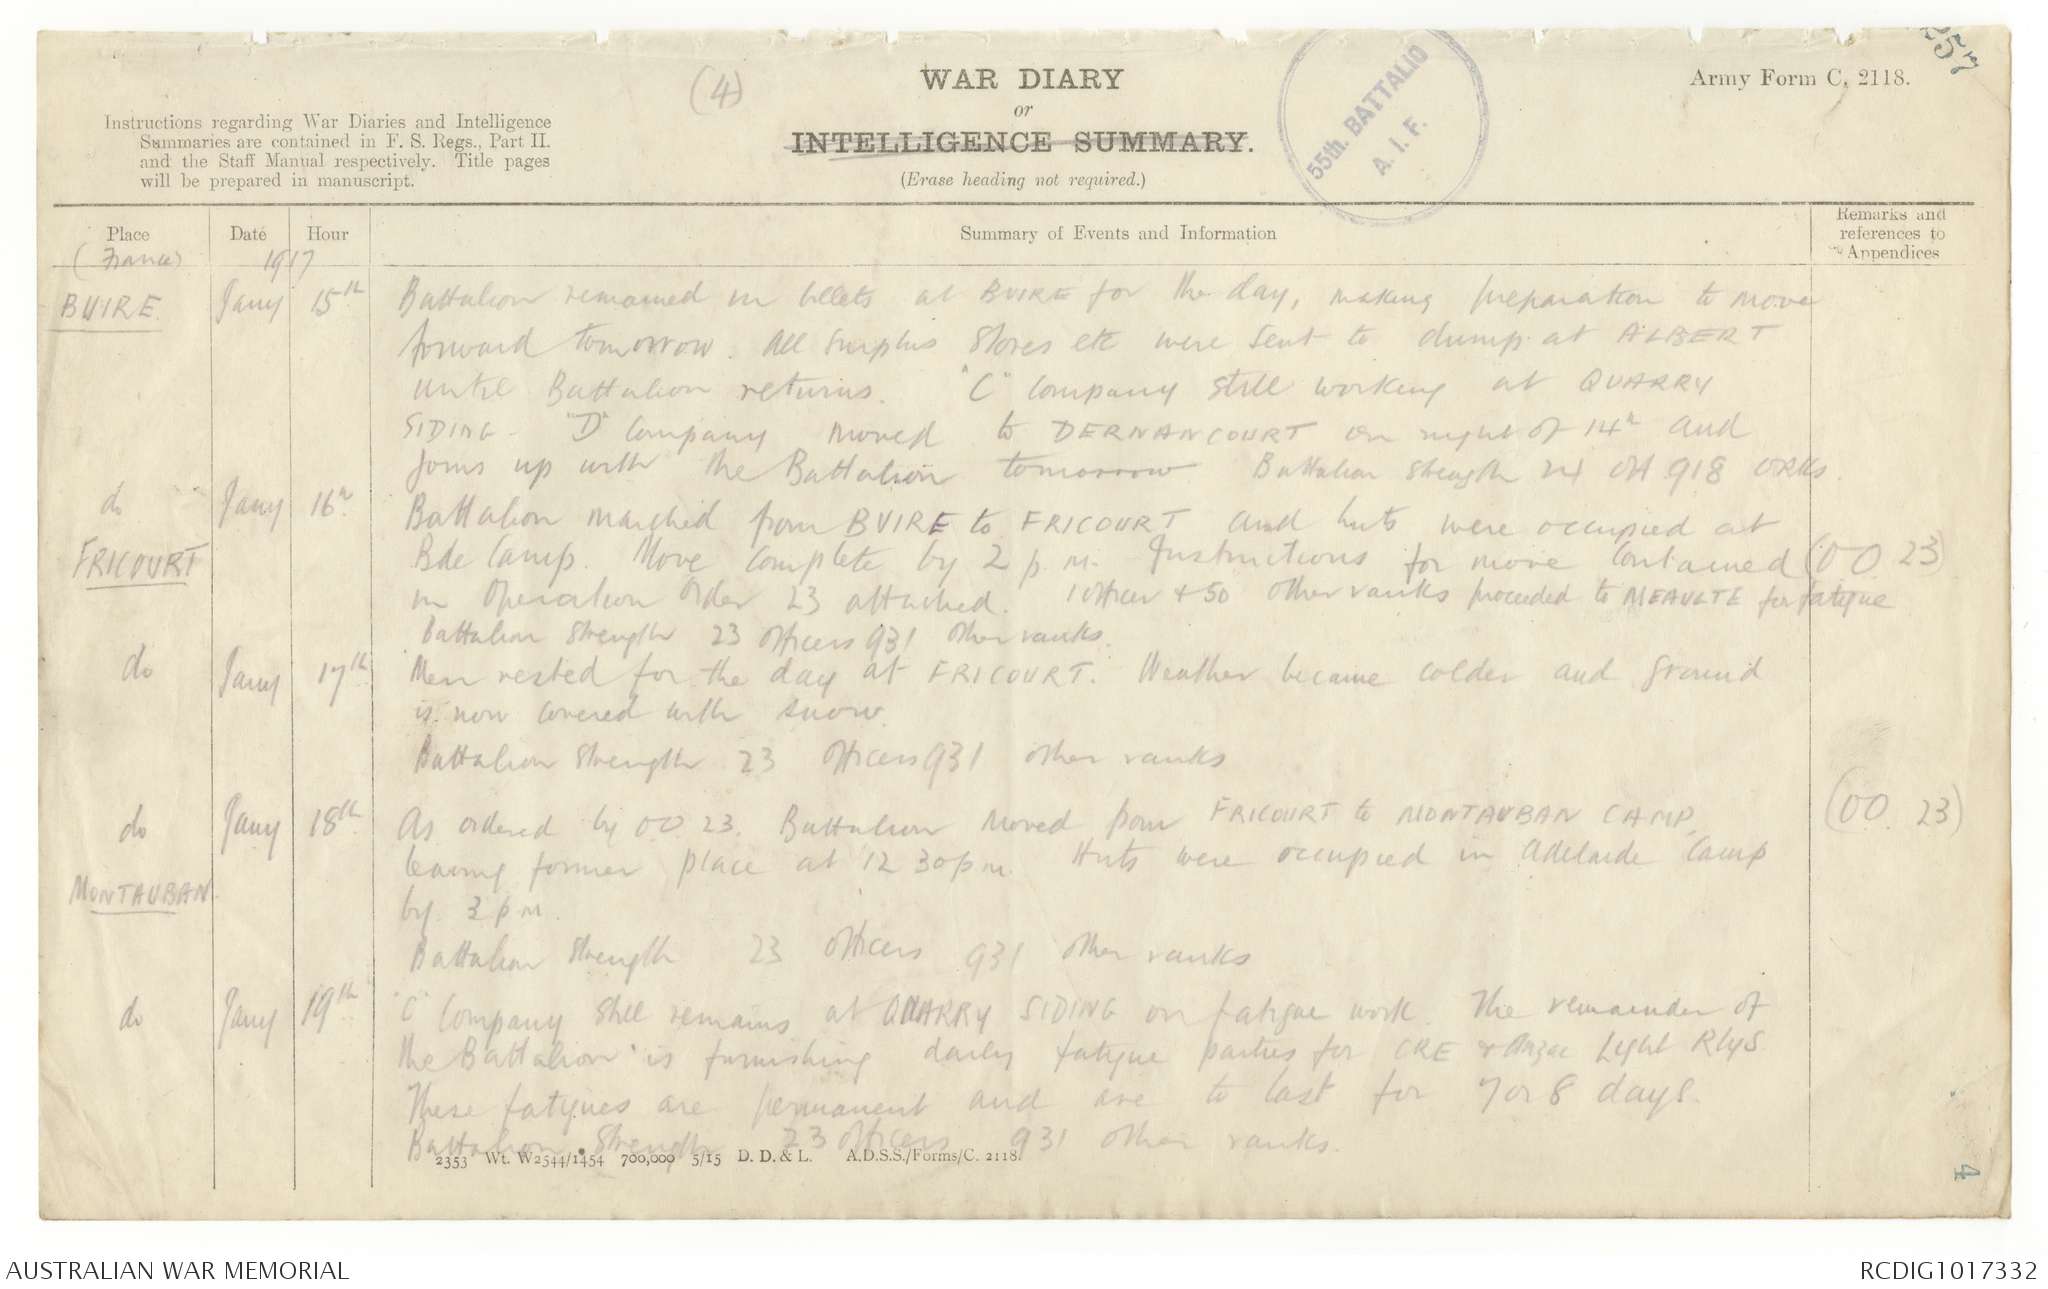 (4)
WAR DIARY
or
INTELLIGENCE SUMMARY.
(Erase heading not required.)
Army Form C. 2118.
Instructions regarding War Diaries and Intelligence
Summaries are contained in F. S. Regs., Part II.
and the Staff Manual respectively. Title pages
will be prepared in manuscript.
55th. BATTALIO
A. I. F.
Place Date Hour Summary of Events and Information Remarks and references to Appendices
(France) 1917
BUIRE Jany 15th Battalion remained in billets at BUIRE for the day, making preparation to move
forward tomorrow. All surplus stores etc were sent to dump at ALBERT
until Battalion returns. "C" Company still working at QUARRY
SIDING. "D" Company moved to DERNANCOURT on night of 14th and
joins up with the Battalion tomorrow Battalion strength 24 Off 918 ORks.
do Jany 16th Battalion marched from BUIRE to FRICOURT and huts were occupied at
FRICOURT Bde Camp. Move complete by 2 p.m. Instructions for move contained (OO 23)
in Operation Order 23 attached. 1 Officer + 50 other ranks proceeded to MEAULTE for fatigue
Battalion strength 23 officers 931 other ranks.
do Jany 17th Men rested for the day at FRICOURT. Weather became colder and ground
is now covered with snow.
Battalion Strength 23 Officers 931 other ranks
do Jany 18th As ordered by OO 23. Battalion moved from FRICOURT to MONTAUBAN CAMP, (OO. 23)
leaving former place at 12 30 pm. Huts were occupied in Adelaide Camp
MONTAUBAN by 3 pm.
Battalion Strength 23 officers 931 other ranks
do Jany 19th "C" Company still remains at QUARRY SIDING on fatigue work. The remainder of
the Battalion is furnishing daily fatigue parties for CRE & Anzac Light Rlys.
These fatigues are permanent and are to last for 7 or 8 days.
Battalion Strength 23 officers 931 other ranks.
2353 Wt. W2544/1454 700,000 5/15 D. D. & L. A.D.S.S./Forms/C. 2118.
4
AUSTRALIAN WAR MEMORIAL RCDIG1017332